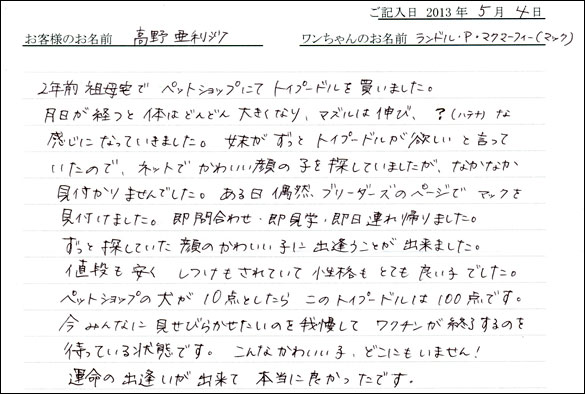 ご記入日 2013 年 5 月 4 日
お客様のお名前 高野 亜利 ワンちゃんのお名前 ランドル・P・マクマーフィー(マック)
2年前 祖母宅で ペットショップにて トイプードルを買いました。
月日が経つと 体はどんどん 大きくなり、マズルは伸び、?(ハテナ)な
感じになっていきました。 妹が ずっと トイプードルが欲しい と言って
いたので、ネットで かわいい顔の子を探していましたが、なかなか
見付かりませんでした。 ある日 偶然、ブリーダーズのページで マックを
見付けました。 即問合わせ・即見学・即日連れ帰りました。
ずっと探していた 顔のかわいい子に出逢うことが出来ました。
値段も安く しつけもされていて 性格も とても良い子でした。
ペットショップの犬が 10点としたら このトイプードルは100点です。
今 みんなに 見せびらかせたいのを我慢して ワクチンが終了するのを
待っている状態です。 こんなかわいい子、どこにもいません!
運命の出逢いが出来て 本当に良かったです。